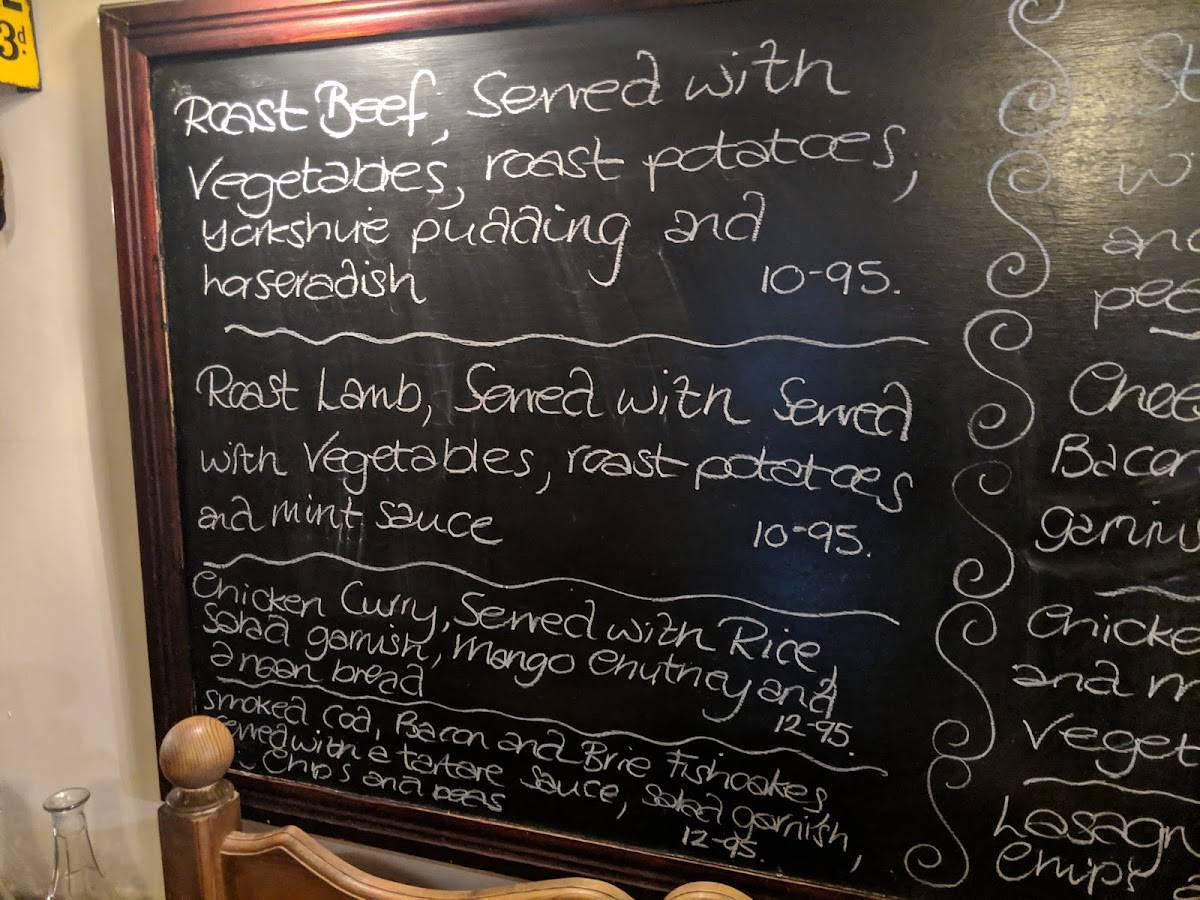 3d.
Roast Beef, Served with
Vegetables, roast potatoes,
yorkshire pudding and
horseradish 10-95.
Roast Lamb, Served with Served
with Vegetables, roast potatoes
and mint sauce 10-95.
Chicken Curry, Served with Rice,
Salad garnish, Mango Chutney and
a naan bread 12-95.
Smoked Cod, Bacon and Brie Fishcakes
served with a tartare sauce, salad garnish,
Chips and peas 12-95.
St
wi
and
pea
Chee
Bacon
garnis
Chicke
and m
Veget
Lasagn
Chips a